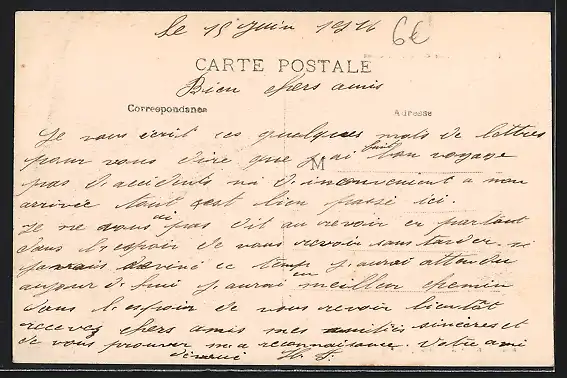 le 15 juin 1916
6€
CARTE POSTALE
Bien chers amis
Correspondance
Adresse
Je vous écrit ces quelques mots de lettres
pour vous dire que j'ai fait bon voyage
M
pas d'accidents ni d'inconvenient a mon
arrivée tout cest bien passé ici.
Je ne vous ai pas dit au revoir en partant
dans l'espoir de vous revoir sans tarder. si
javais deviné ce temps j'aurai attendu
aujour d'hui j'aurai eu meilleur chemin
dans l'espoir de vous revoir bientôt
recevez chers amis mes sincères et
de vous prouver ma reconnaissance. Votre ami